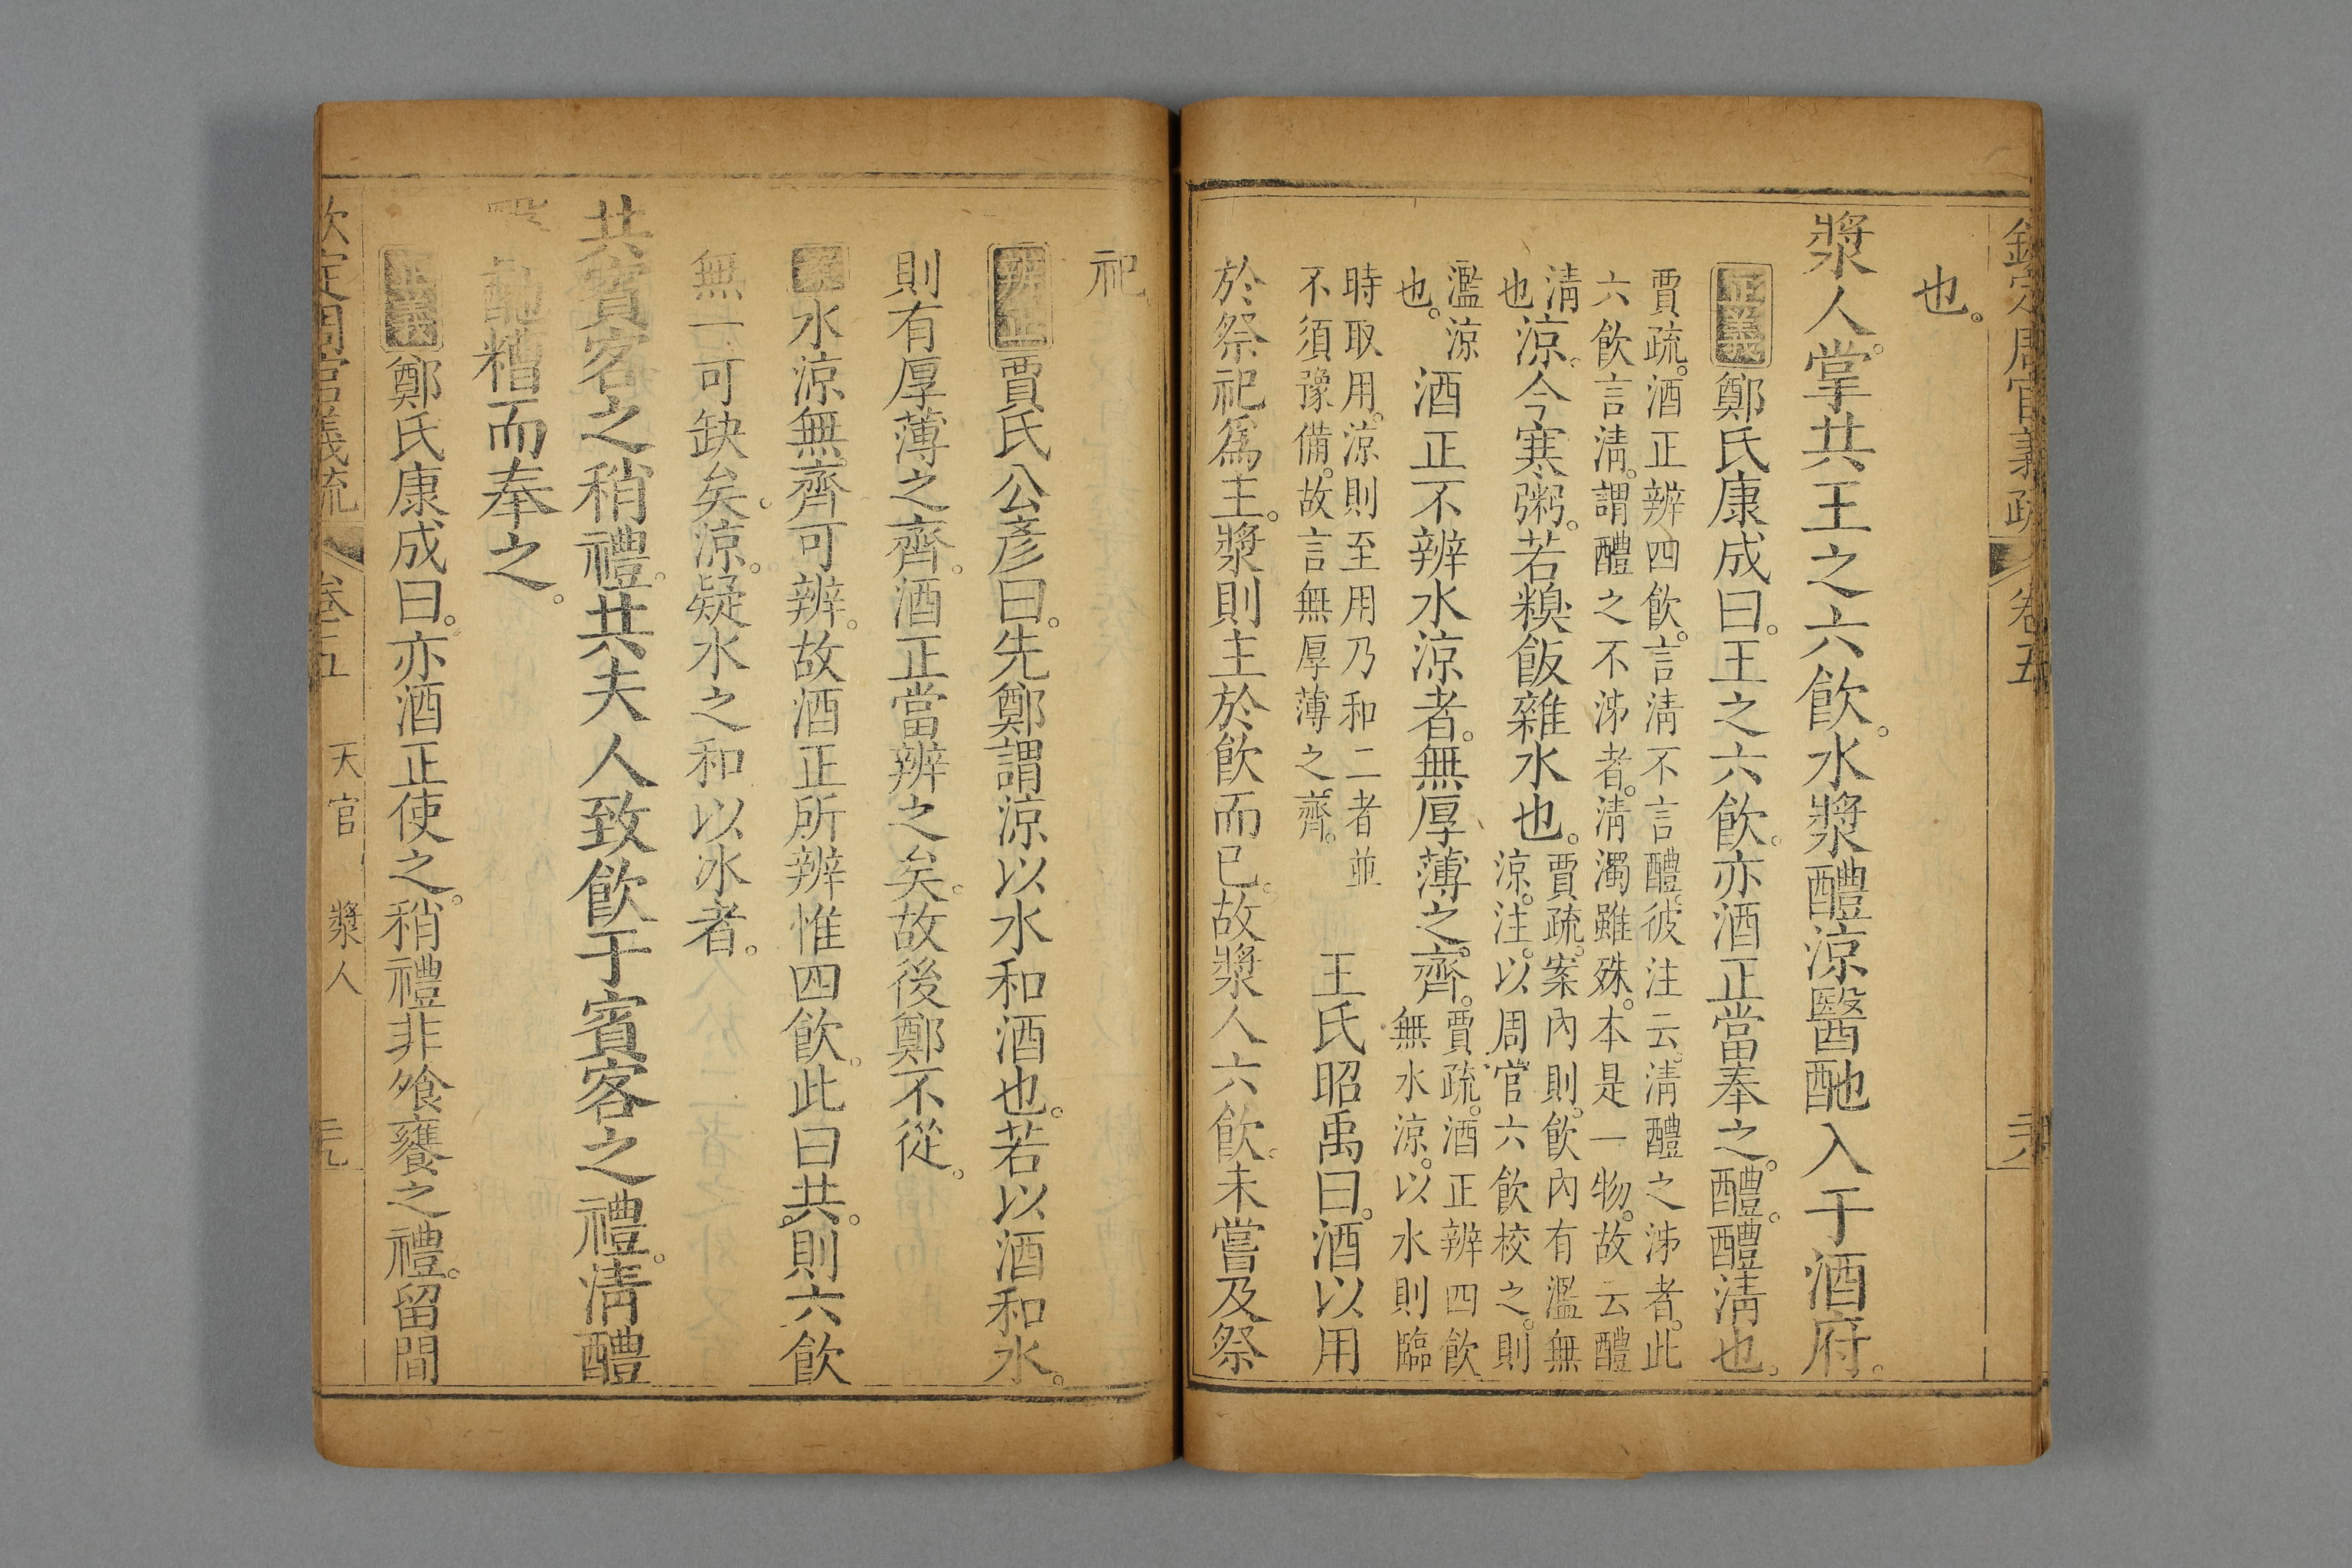 欽定周官義疏 卷五
也。
漿人。掌共王之六飲。水漿醴涼醫酏入于酒府。
正義 鄭氏康成曰。王之六飲。亦酒正當奉之。醴。醴淸也。
賈疏。酒正辨四飲。言淸不言醴。彼注云。淸醴之泲者。此
六飲言淸。謂醴之不泲者。淸濁雖殊。本是一物。故云醴
淸
也
涼。今寒粥。若糗飯雜水也。
賈疏。案內則。飲內有濫無
涼。注。以周官六飲校之。則
濫涼
也。
酒正不辨水涼者。無厚薄之齊。
賈疏。酒正辨四飲
無水涼。以水則臨
時取用。涼則至用乃和二者並
不須豫備。故言無厚薄之齊。
王氏昭禹曰。酒以用
於祭祀爲主。漿則主於飲而已。故漿人六飲。未嘗及祭
祀
辨正 賈氏公彥曰。先鄭謂涼以水和酒也。若以酒和水。
則有厚薄之齊。酒正當辨之矣。故後鄭不從。
案 水涼無齊可辨。故酒正所辨惟四飲。此曰共。則六飲
無一可缺矣。涼。疑水之和以冰者。
共賓客之稍禮。共夫人致飲于賓客之禮。淸醴
醫酏糟而奉之。
正義 鄭氏康成曰。亦酒正使之。稍禮非飧饔之禮。留間
欽定周官義疏 卷五 天官 漿人